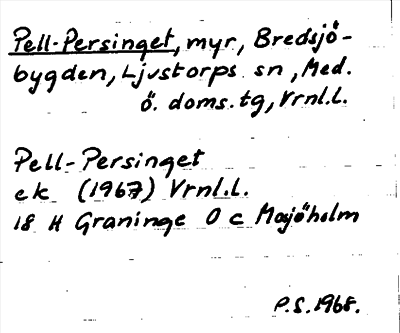 Pell-Persinget, myr, Bredsjö-
bygden, Ljustorps sn, Med.
ö. doms.tg, Vrnl.l.
Pell-Persinget
ek (1967) Vrnl.l.
18 H Graninge 0 c Mosjöholm
P.S. 1968.